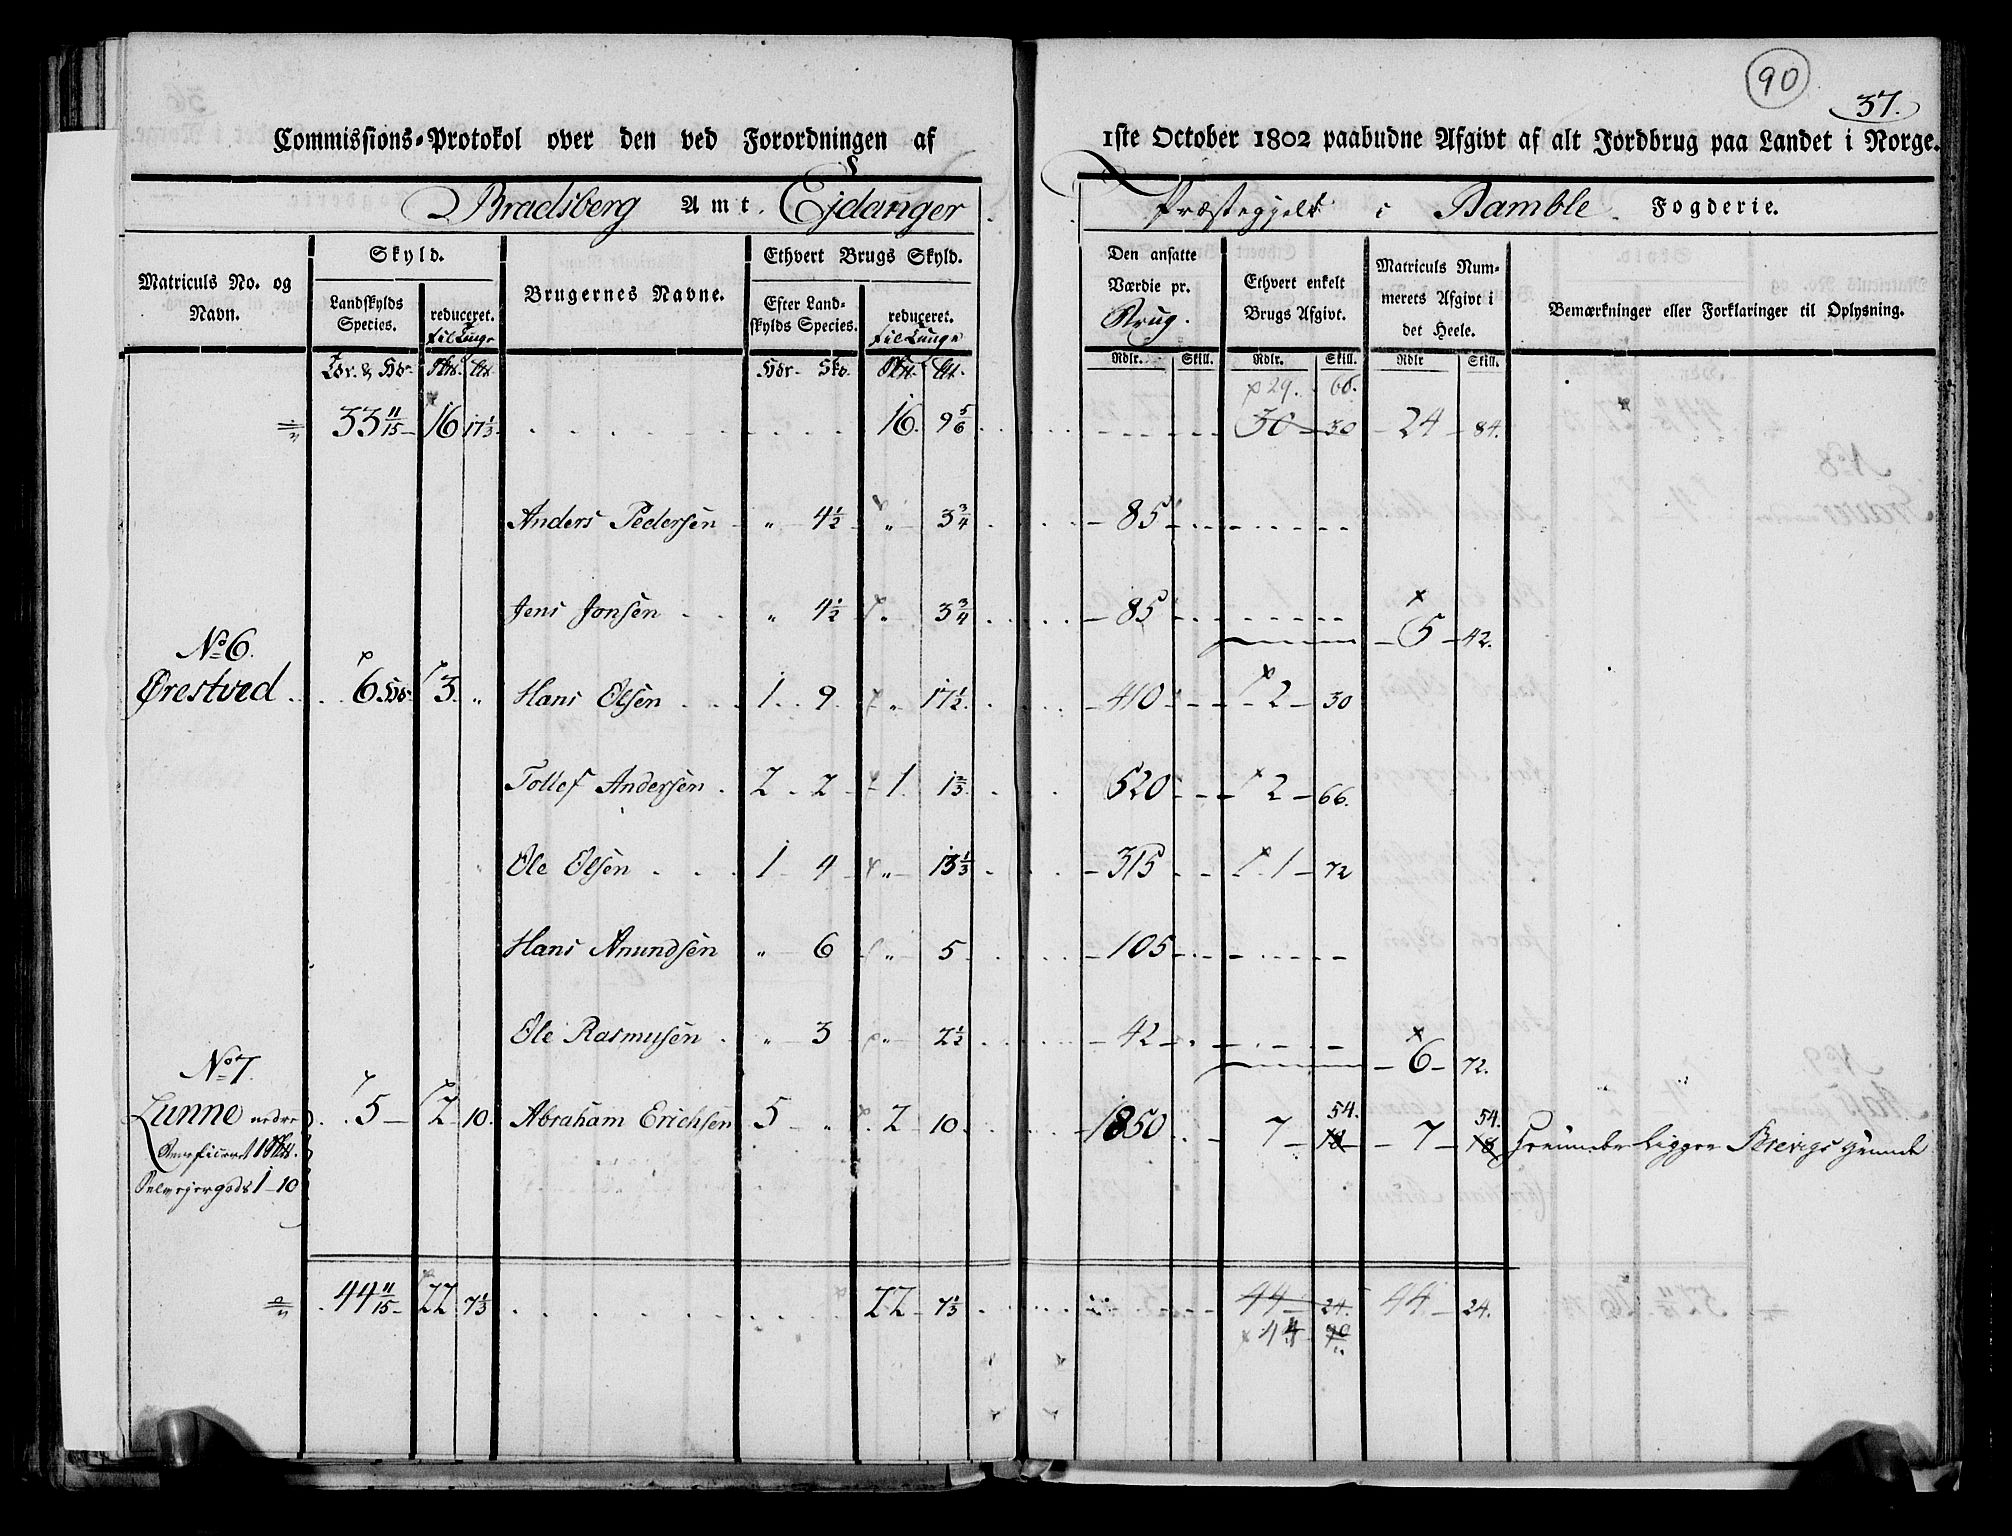 90
37.
Commissions-Protokol over den ved Forordningen af 1ste October 1802 paabudne Afgivt af alt Jordbrug paa Landet i Norge.
Bradsberg Amt. Ejdanger Præstegjeld i Bamble Fogderie.
Matriculs No. og Navn.
Skyld.
Landskylds Species.
reduceret. til Tunge
Brugernes Navne.
Ethvert Brugs Skyld.
Efter Landskylds Species.
reduceret. til Tunge
Den ansatte Værdie pr. Brug.
Ethvert enkelt Brugs Afgivt.
Matriculs Nummerets Afgivt i det Heele.
Bemærkninger eller Forklaringer til Oplysning.
Rdlr. Skill. Rdlr. Skill. Rdlr Skill.
29. 66.
33 11/15 16 17 1/3 16. 9 5/6 30 30 24 84.
Anders Pedersen " 4 1/2 " 3 3/4 85
Jens Jonsen " 4 1/2 " 3 3/4 85
5 42.
No 6.
Ørestvæd 6 3. " Hans Olsen 1 9 " 17 1/2 410 2 30
Tollef Andersen 2 2 1. 1 2/3 520 2 66.
Ole Olsen 1 4 " 13 1/3 315 1 72
Hans Anundsen " 6 " 5 105
Ole Rasmusen " 3 " 2 1/2 42
6 72.
No 7.
54. 54.
Lunne nedre 5 2 10. Abraham Erichsen 5 " 2 10 1850 7 18 7 18 Herunder Ligger Brevigs Grund
Beneficeret 1
Selvejergods 1 10
44 11/15 22 7 1/3 22 7 1/3 44 24. 44 24.
44 90